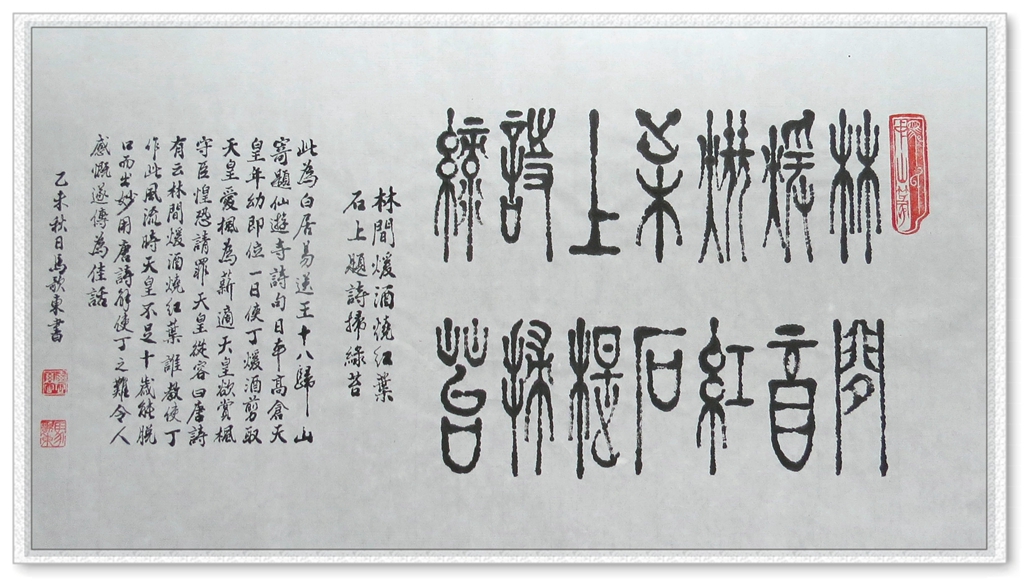 林間
煖酒
燒紅
葉石
上題
詩掃
綠苔
林間煖酒燒紅葉
石上題詩掃綠苔
此為白居易送王十八歸山
寄題仙遊寺詩句日本高倉天
皇年幼即位一日使丁煖酒剪取
天皇愛楓為薪適天皇欲賞楓
守臣惶恐請罪天皇從容曰唐詩
有云林間煖酒燒紅葉誰教使丁
作此風流時天皇不足十歲能脫
口而出妙用唐詩解使丁之難令人
感慨遂傳為佳話
乙未秋日馬歌東書